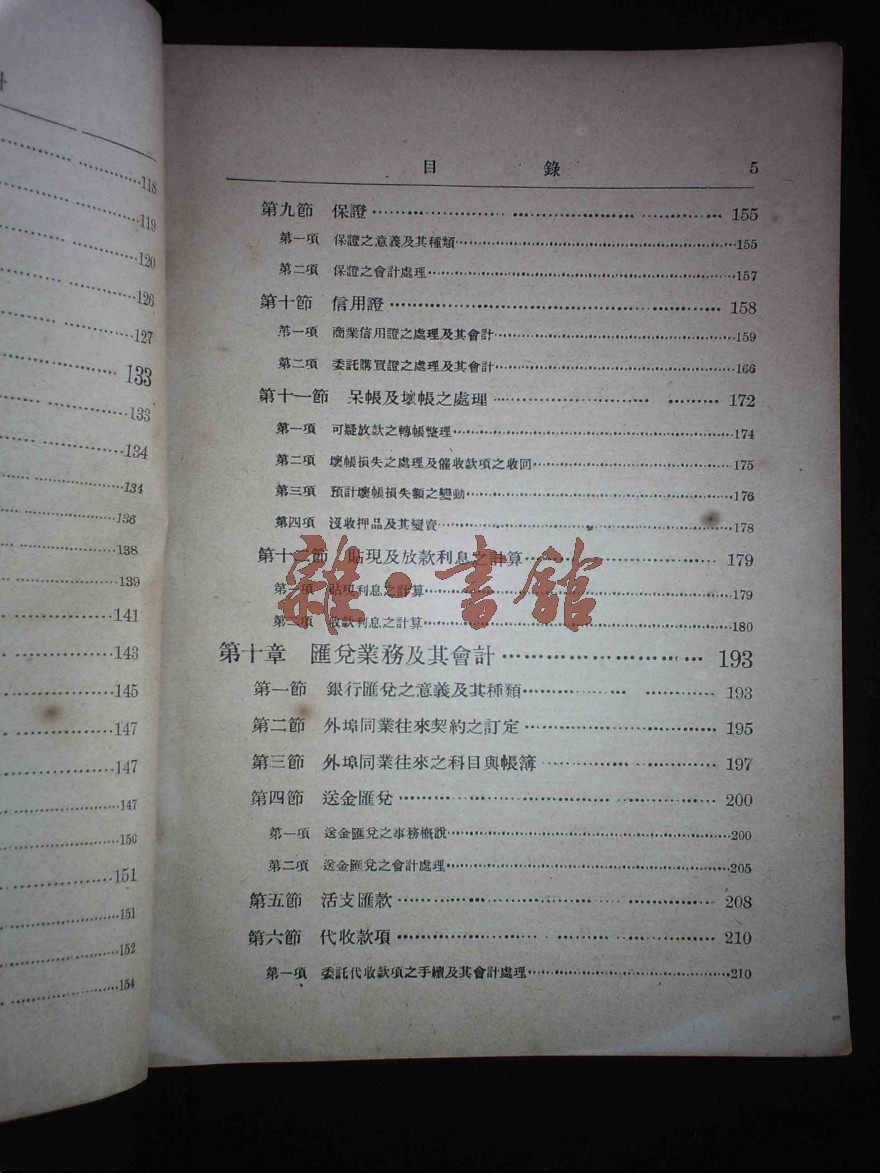 118
119
120
126
127
133
133
134
134
136
138
139
141
143
145
147
147
147
150
151
151
152
154
目 錄 5
第九節 保證 155
第一項 保證之意義及其種類 155
第二項 保證之會計處理 157
第十節 信用證 158
第一項 商業信用證之處理及其會計 159
第二項 委託購買證之處理及其會計 166
第十一節 呆帳及壞帳之處理 172
第一項 可疑放款之轉帳整理 174
第二項 壞帳損失之處理及催收款項之收回 175
第三項 預計壞帳損失額之變動 176
第四項 沒收押品及其變賣 178
第十二節 貼現及放款利息之計算 179
第一項 貼現利息之計算 179
第二項 收款利息之計算 180
第十章 匯兌業務及其會計 193
第一節 銀行匯兌之意義及其種類 193
第二節 外埠同業往來契約之訂定 195
第三節 外埠同業往來之科目與帳簿 197
第四節 送金匯兌 200
第一項 送金匯兌之事務概說 200
第二項 送金匯兌之會計處理 205
第五節 活支匯款 208
第六節 代收款項 210
第一項 委託代收款項之手續及其會計處理 210
雜·書館